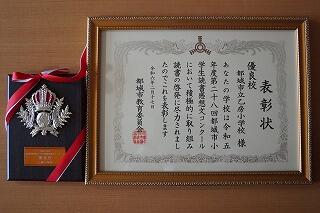 表彰状
優良校
都城市立乙房小学校 様
あなたの学校は令和五
年度第二十八回都城市小
学生読書感想文コンクール
において積極的に取り組み
読書の啓発に尽力されまし
たのでこれを表彰します
令和六年二月十七日
都城市教育委員会